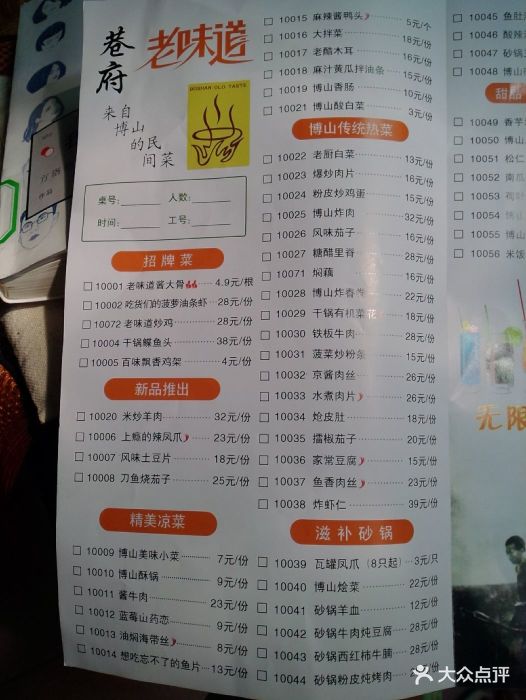 巷府
老味道
来自
博山
的民
间菜
BOSHAN OLD TASTE
桌号: 人数:
时间: 工号:
招牌菜
10001 老味道酱大骨 4.9元/根
10002 吃货们的菠萝油条虾 28元/份
10072 老味道炒鸡 28元/份
10004 干锅鲽鱼头 38元/份
10005 百味飘香鸡架 4元/份
新品推出
10020 米炒羊肉 32元/份
10006 上瘾的辣凤爪 23元/份
10007 风味土豆片 18元/份
10008 刀鱼烧茄子 25元/份
精美凉菜
10009 博山美味小菜 7元/份
10010 博山酥锅 9元/份
10011 酱牛肉 23元/份
10012 蓝莓山药恋 9元/份
10013 油焖海带丝 8元/份
10014 想吃忘不了的鱼片 13元/份
10015 麻辣酱鸭头 5元/个
10016 大拌菜 18元/份
10017 老醋木耳 16元/份
10018 麻汁黄瓜拌油条 15元/份
10019 博山香肠 10元/份
10021 博山酸白菜 3元/份
博山传统热菜
10022 老厨白菜 13元/份
10023 爆炒肉片 16元/份
10024 粉皮炒鸡蛋 15元/份
10025 博山炸肉 32元/份
10026 风味茄子 16元/份
10027 糖醋里脊 28元/份
10071 焖藕 16元/份
10028 博山炸春卷 22元/份
10029 干锅有机菜花 18元/份
10030 铁板牛肉 28元/份
10031 菠菜炒粉条 15元/份
10032 京酱肉丝 26元/份
10033 水煮肉片 26元/份
10034 炝皮肚 18元/份
10035 擂椒茄子 20元/份
10036 家常豆腐 15元/份
10037 鱼香肉丝 23元/份
10038 炸虾仁 39元/份
滋补砂锅
10039 瓦罐凤爪（8只起） 3元/只
10040 博山烩菜 22元/份
10041 砂锅羊血 12元/份
10042 砂锅牛肉炖豆腐 28元/份
10043 砂锅西红柿牛腩 28元/份
10044 砂锅粉皮炖烤肉
10045 鱼肚
10046 酸辣
10047 砂锅
10048 博山
甜品
10049 香芋
10050 博山
10051 松仁
10052 南瓜
10053
10054
10055 博山
10056 米饭
无限
大众点评